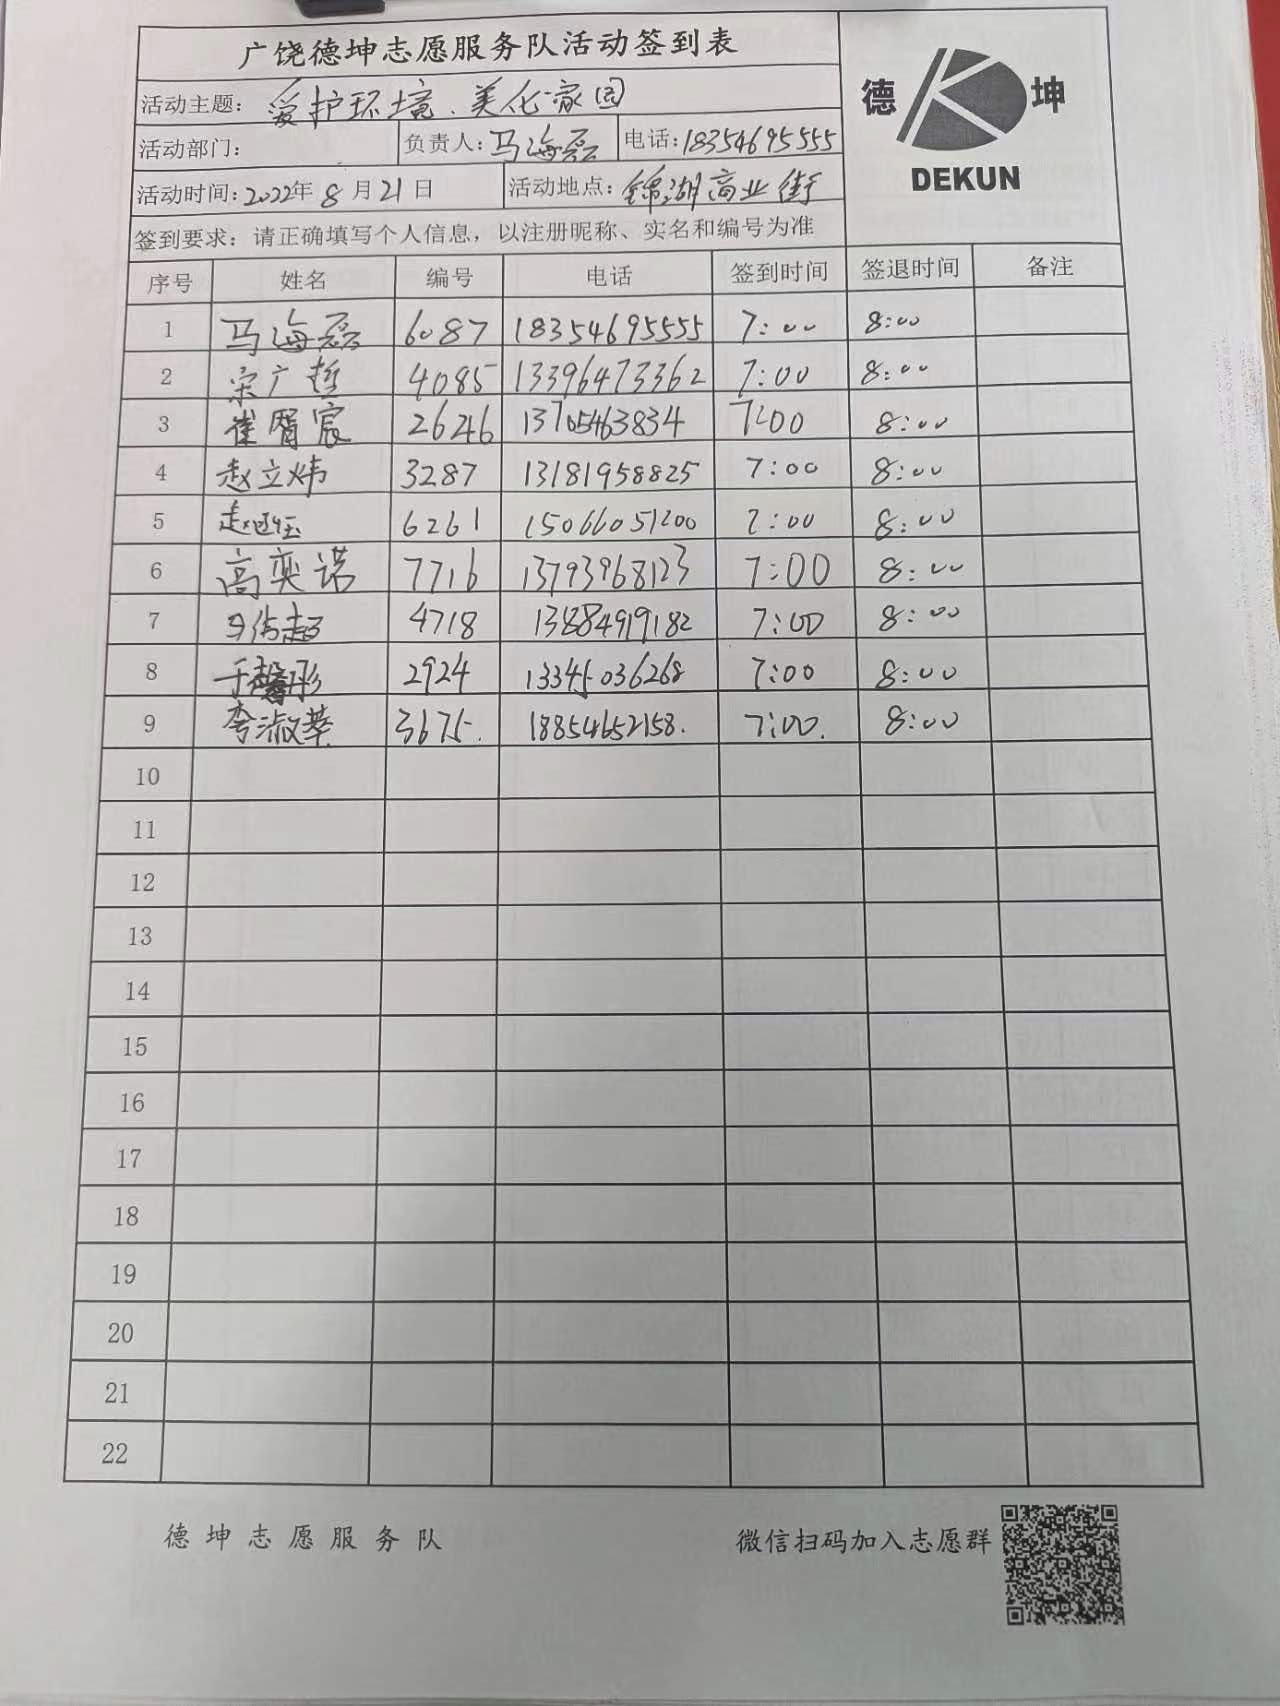 广饶德坤志愿服务队活动签到表
德 坤
DEKUN
活动主题：爱护环境、美化家园
活动部门： 负责人：马海磊 电话：18354695555
活动时间：2022年8月21日 活动地点：锦湖商业街
签到要求：请正确填写个人信息，以注册昵称、实名和编号为准
序号 姓名 编号 电话 签到时间 签退时间 备注
1 马海磊 6087 18354695555 7:00 8:00
2 宋广哲 4085 13396473362 7:00 8:00
3 崔胥宸 2646 13705463834 7:00 8:00
4 赵立炜 3287 13181958825 7:00 8:00
5 6261 15066051200 7:00 8:00
6 高奕诺 7716 13793968123 7:00 8:00
7 4718 13884919182 7:00 8:00
8 于馨彤 2924 13345036268 7:00 8:00
9 李淑苹 3675. 18854652158. 7:00. 8:00
10
11
12
13
14
15
16
17
18
19
20
21
22
德坤志愿服务队 微信扫码加入志愿群